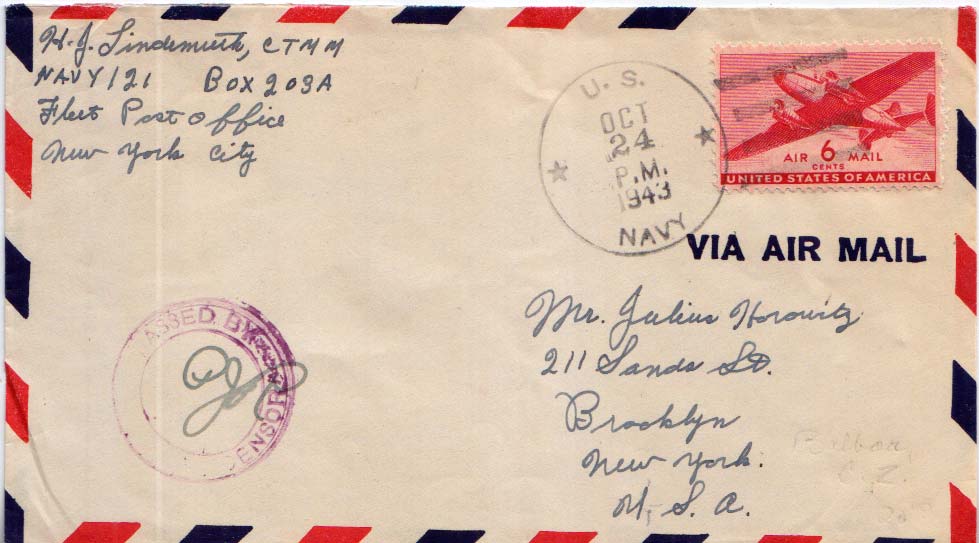 H. J. Lindemuth, CTMM
NAVY 121 BOX 203A
Fleet Post Office
New York City
U. S.
OCT
24
P.M.
1943
NAVY
AIR 6 MAIL
CENTS
UNITED STATES OF AMERICA
VIA AIR MAIL
PASSED BY
CENSOR
Mr. Julius Horowitz
211 Sands St.
Brooklyn
New York.
U. S. A.
Balboa,
C. Z.